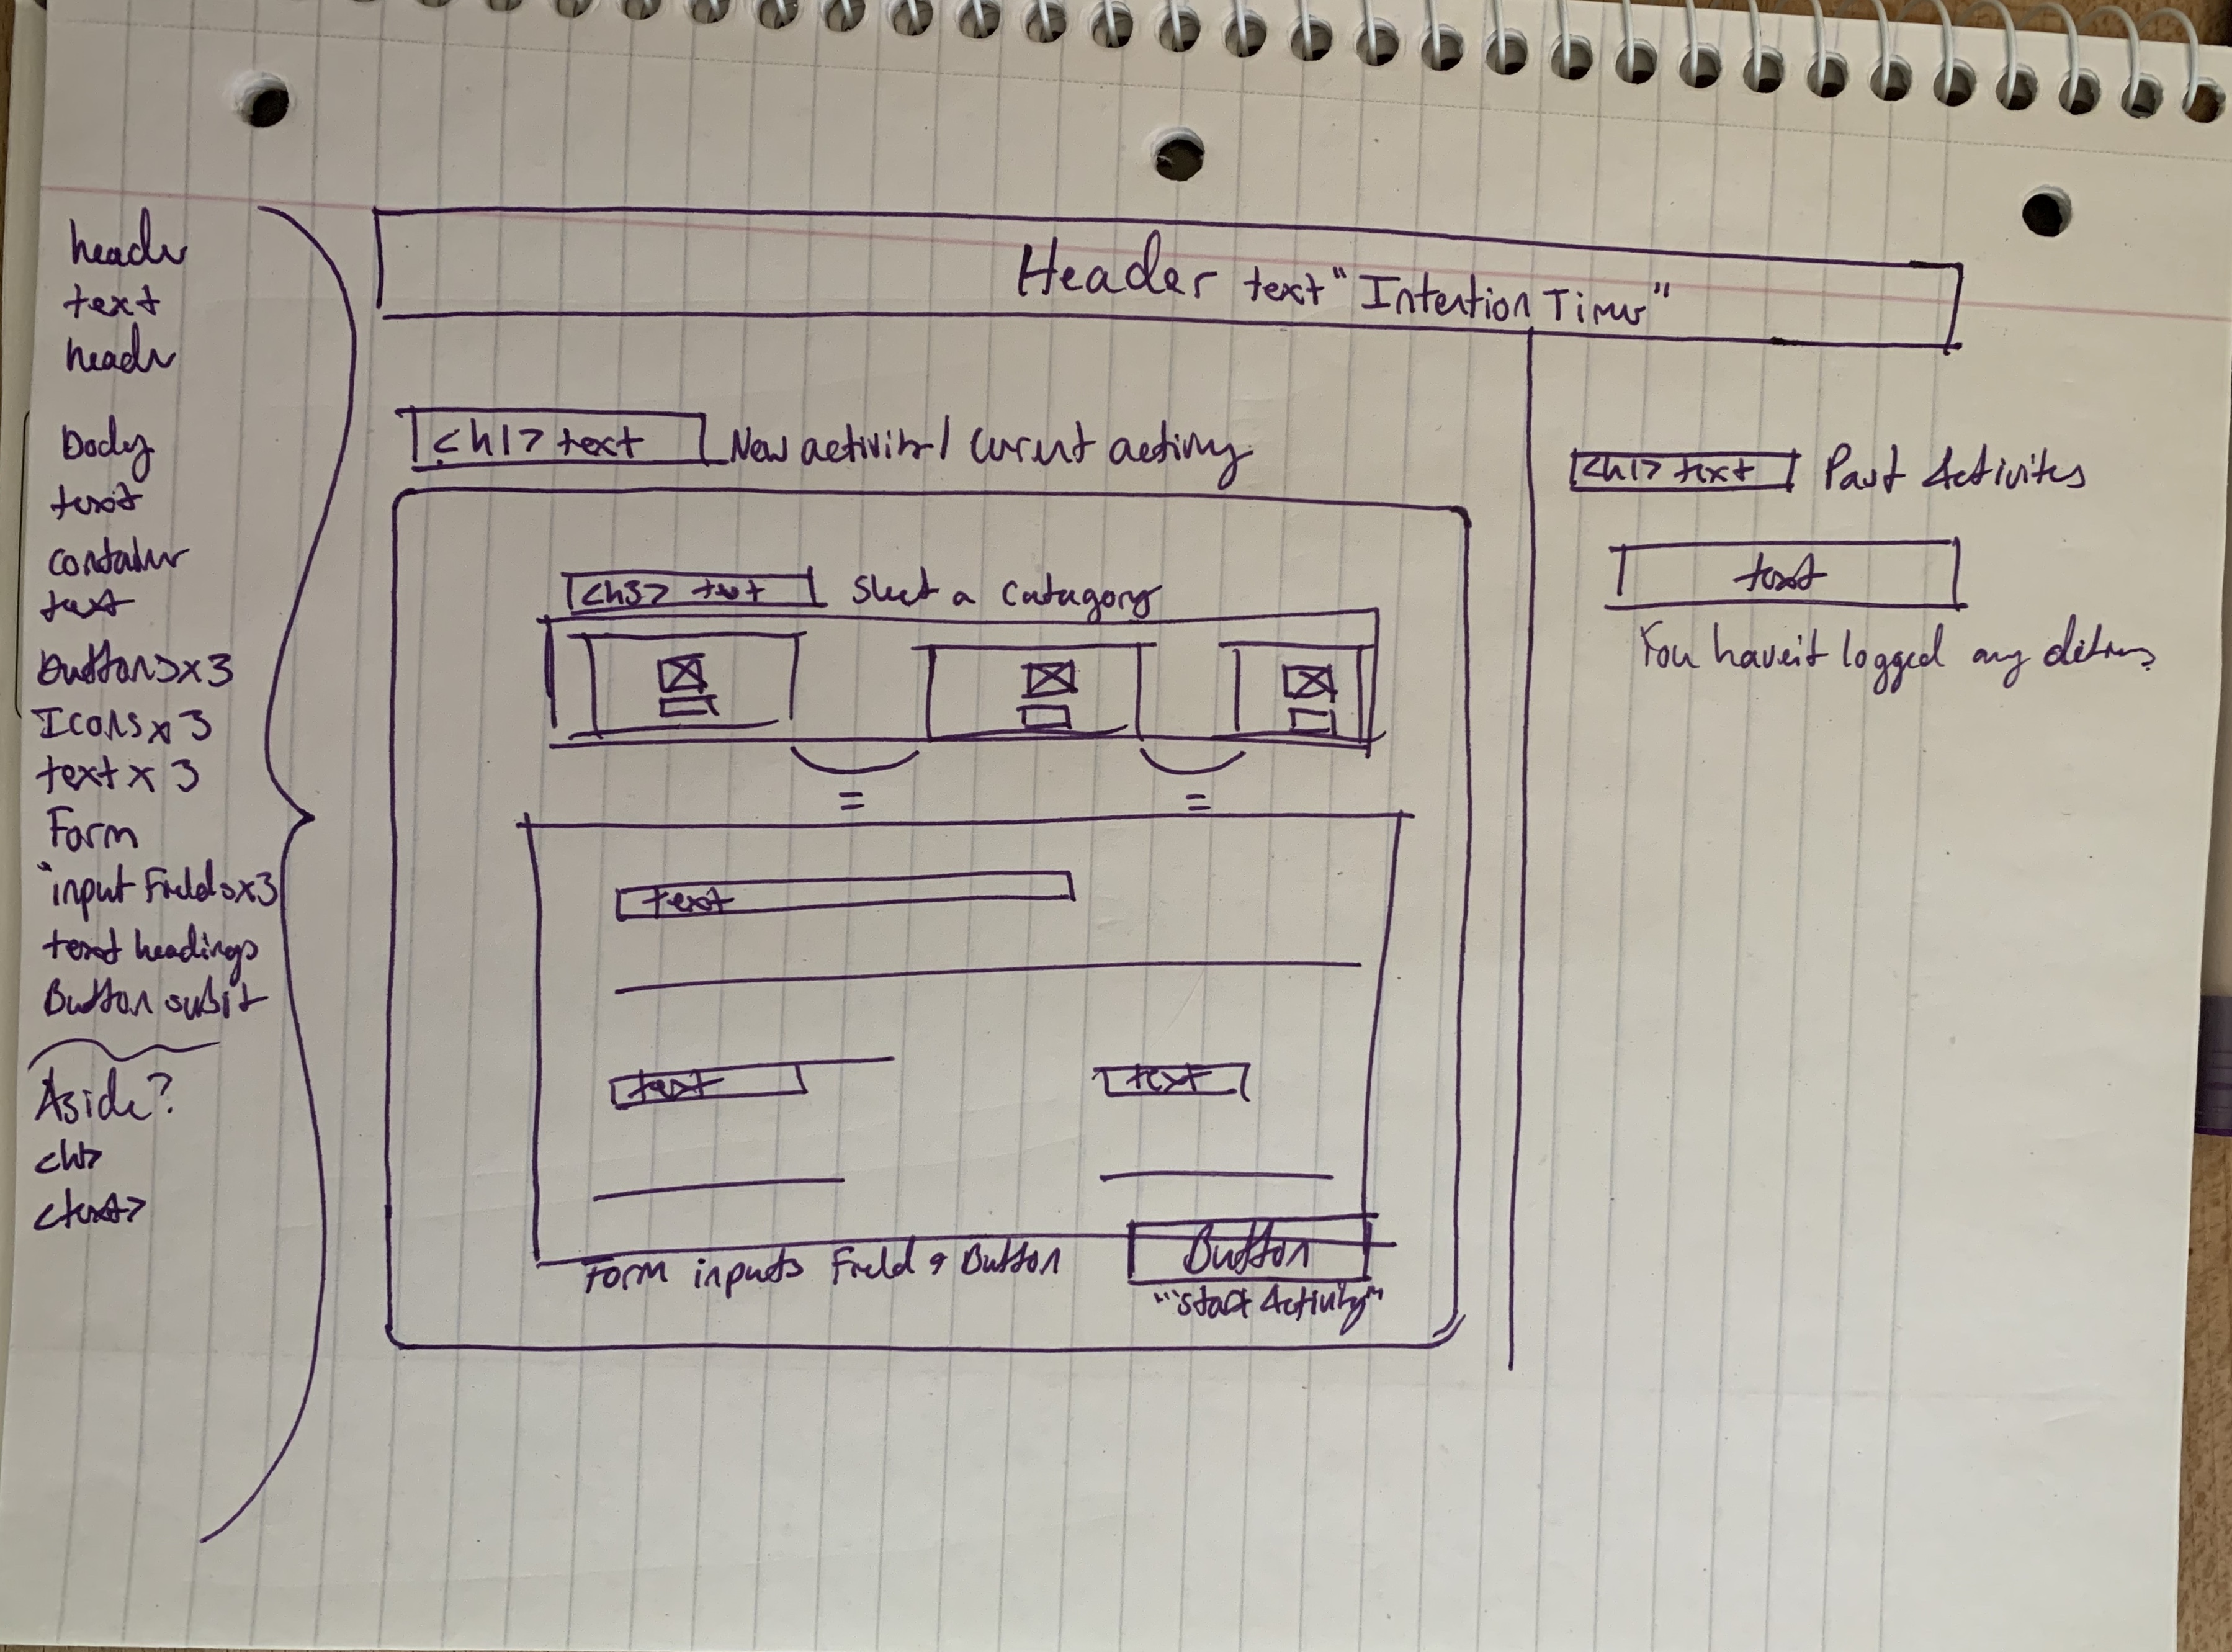 header
text
header
Body
text
container
text
Buttons x 3
Icons x 3
text x 3
Form
input Fields x3
text headings
Button subit
Aside?
<text>
Header text "Intention Timer"
<h1> text New activity / Current activity
<h3> text Select a Catagory
= =
text
text text
Form inputs Field & Button
Button
"Start Activity"
<h1> text Past Activites
text
You haven't logged any